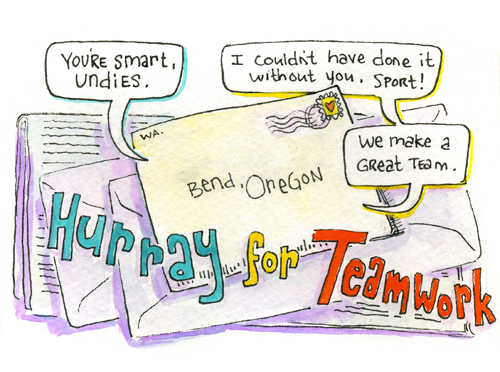 You're smart,
undies.
I couldn't have done it
without you, sport!
We make a
great team.
WA.
Bend, Oregon
Hurray for Teamwork